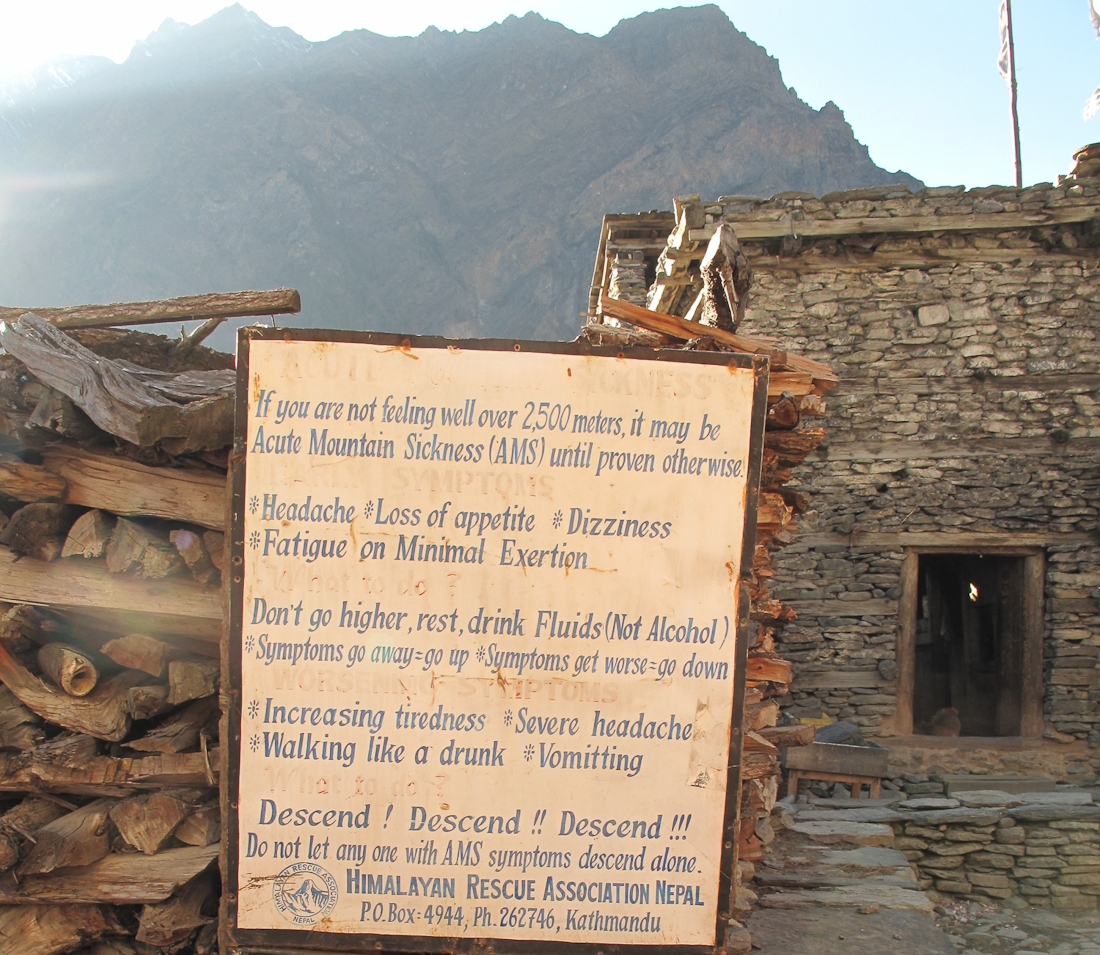 ACUTE SICKNESS
If you are not feeling well over 2,500 meters, it may be
Acute Mountain Sickness (AMS) until proven otherwise.
EARLY SYMPTOMS
*Headache *Loss of appetite *Dizziness
*Fatigue on Minimal Exertion
What to do ?
Don't go higher, rest, drink Fluids (Not Alcohol)
*Symptoms go away=go up *Symptoms get worse=go down
WORSENING SYMPTOMS
*Increasing tiredness *Severe headache
*Walking like a drunk *Vomitting
What to do ?
Descend ! Descend !! Descend !!!
Do not let any one with AMS symptoms descend alone.
HIMALAYAN RESCUE ASSOCIATION NEPAL
HIMALAYAN RESCUE ASSOCIATION NEPAL
P.O.Box=4944, Ph. 262746, Kathmandu